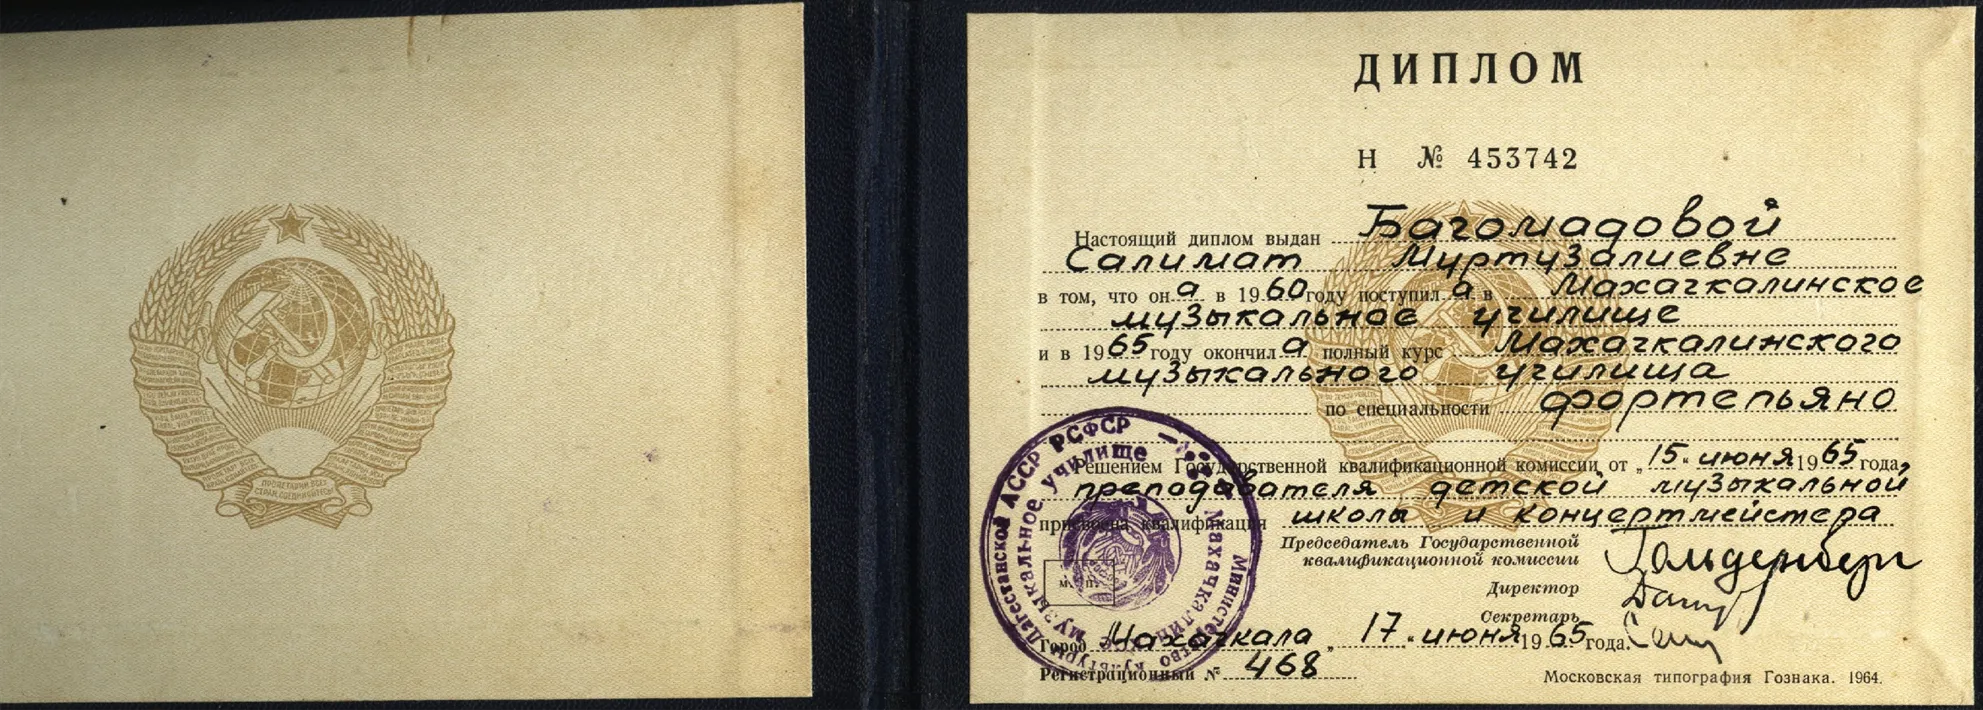 ПРОЛЕТАРИИ ВСЕХ
СТРАН, СОЕДИНЯЙТЕСЬ!
ДИПЛОМ
Н № 453742
Настоящий диплом выдан Багомадовой
Салимат Муртузалиевне
в том, что она в 1960 году поступила в Махачкалинское
музыкальное училище
и в 1965 году окончила полный курс Махачкалинского
музыкального училища
по специальности фортепьяно
Решением Государственной квалификационной комиссии от „15“ июня 1965 года
преподавателя детской музыкальной
присвоена квалификация школы и концертмейстера
Председатель Государственной
квалификационной комиссии Гольденберг
Директор
Секретарь
Город Махачкала „17“ июня 1965 года.
Регистрационный № 468
Московская типография Гознака. 1964.
Министерство культуры Дагестанской АССР РСФСР
Махачкалинское музыкальное училище